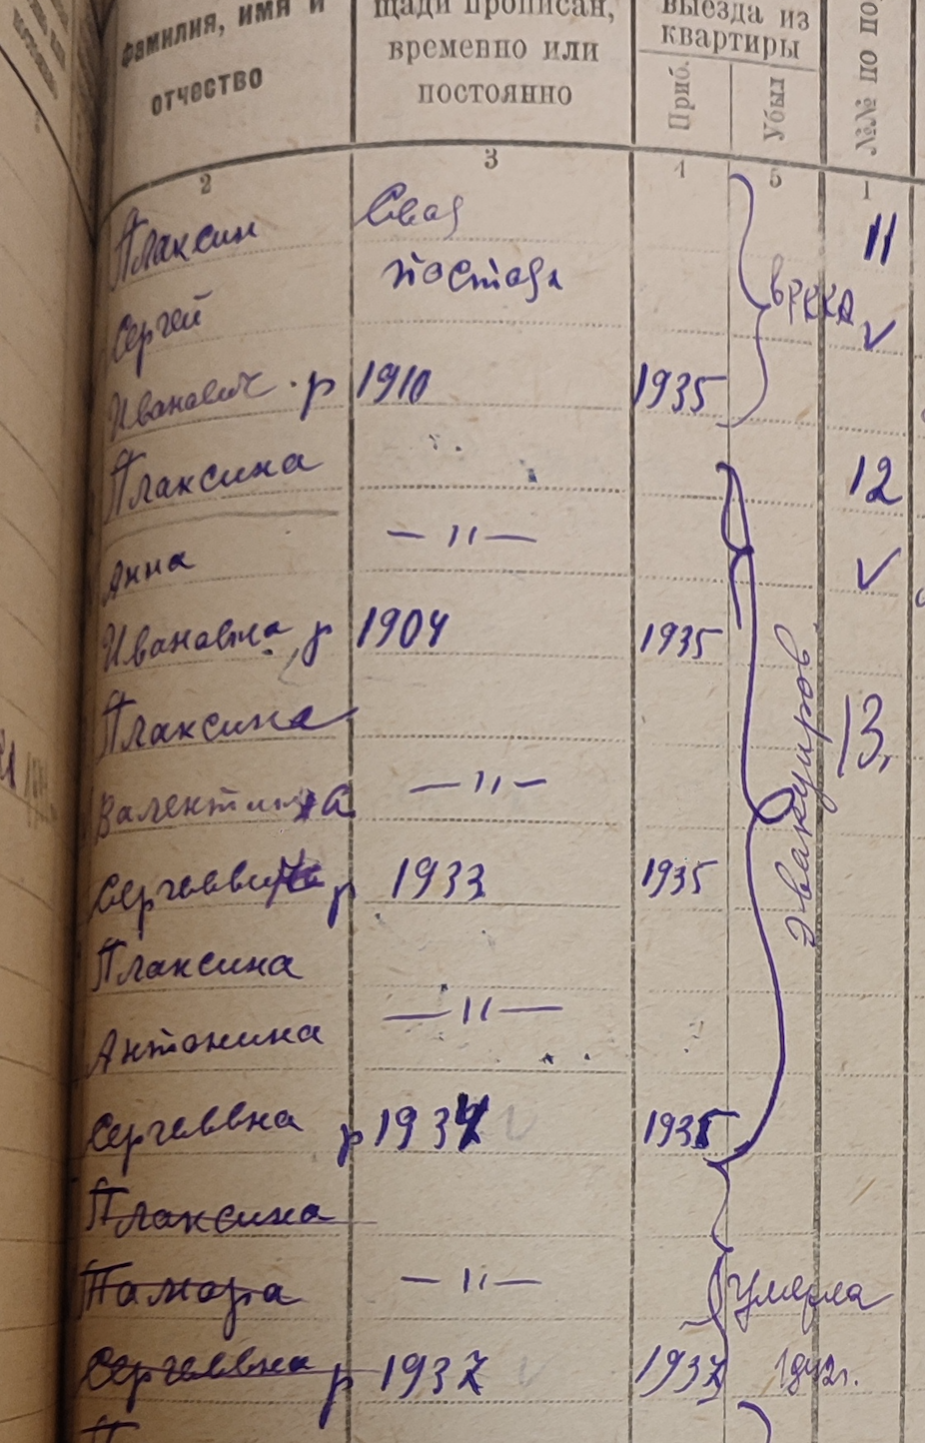 фамилия, имя и
отчество
щади прописан,
временно или
постоянно
выезда из
квартиры
Приб.
Убыл
№№ по по
2 3 4 5 1
Плаксин Своя 11
Сергей постоян в РККА
Иванович р 1910 1935
Плаксина 12
Анна — 11 —
Ивановна р 1904 1935
эвакуиров.
Плаксина 13.
Валентина — 11 —
р 1933 1935
Плаксина
Антонина — 11 —
Сергеевна р 1934 1935
Плаксина
Тамара — 11 — умерла
Сергеевна р 1937 1937 1942г.